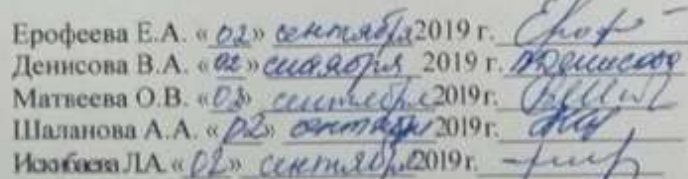 Ерофеева Е.А. «02» сентября 2019 г. Ероф
Денисова В.А. «02» сентября 2019 г. Денисова
Матвеева О.В. «03» сентября 2019 г.
Шаланова А.А. «02» сентября 2019 г.
Л.А. «02» сентября 2019 г.